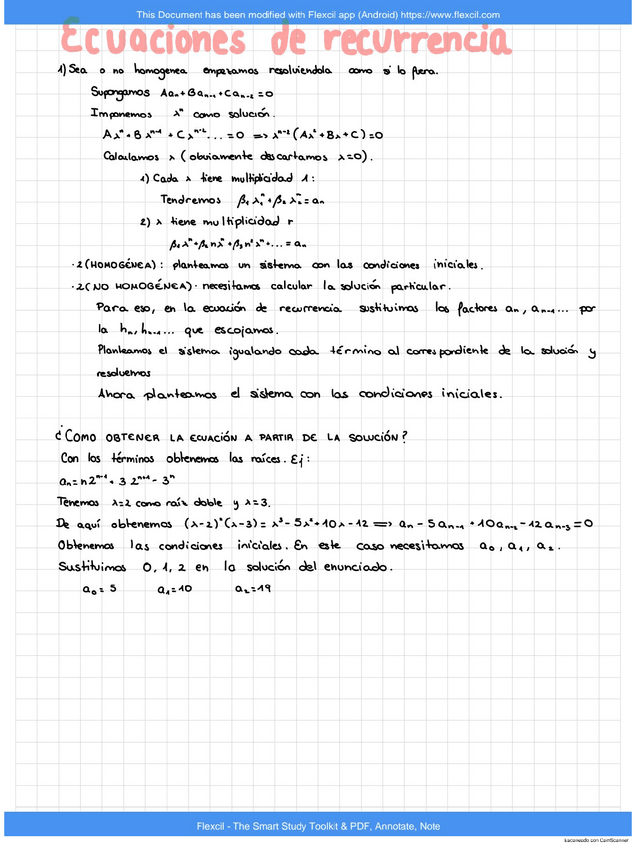 This Document has been modified with Flexcil app (Android) https://www.flexcil.com
Ecuaciones de recurrencia
1) Sea o no homogenea empezamos resolviendola como si lo fuera.
Supongamos Aaₙ + Baₙ₋₁ + Caₙ₋₂ = 0
Imponemos λⁿ como solución.
Aλⁿ + Bλⁿ⁻¹ + Cλⁿ⁻²... = 0 => λⁿ⁻²(Aλ² + Bλ + C) = 0
Calculamos λ (obviamente descartamos λ=0).
1) Cada λ tiene multiplicidad 1:
Tendremos β₁λ₁ⁿ + β₂λ₂ⁿ = aₙ
2) λ tiene multiplicidad r
β₁λⁿ + β₂nλⁿ + β₃n²λⁿ + ... = aₙ
·2(HOMOGÉNEA): planteamos un sistema con las condiciones iniciales.
·2(NO HOMOGÉNEA)· necesitamos calcular la solución particular.
Para eso, en la ecuación de recurrencia sustituimos los factores aₙ, aₙ₋₁... por
la hₙ, hₙ₋₁... que escojamos.
Planteamos el sistema igualando cada término al correspondiente de la solución y
resolvemos
Ahora planteamos el sistema con las condiciones iniciales.
¿COMO OBTENER LA ECUACIÓN A PARTIR DE LA SOLUCIÓN?
Con los términos obtenemos las raíces. Ej:
aₙ = n2ⁿ⁻¹ + 3 2ⁿ⁺¹ - 3ⁿ
Tenemos λ=2 como raíz doble y λ=3.
De aquí obtenemos (λ-2)²(λ-3) = λ³ - 5λ² + 10λ - 12 => aₙ - 5aₙ₋₁ + 10aₙ₋₂ - 12aₙ₋₃ = 0
Obtenemos las condiciones iniciales. En este caso necesitamos a₀, a₁, a₂.
Sustituimos 0, 1, 2 en la solución del enunciado.
a₀ = 5 a₁ = 10 a₂ = 19
Flexcil - The Smart Study Toolkit & PDF, Annotate, Note
Escaneado con CamScanner